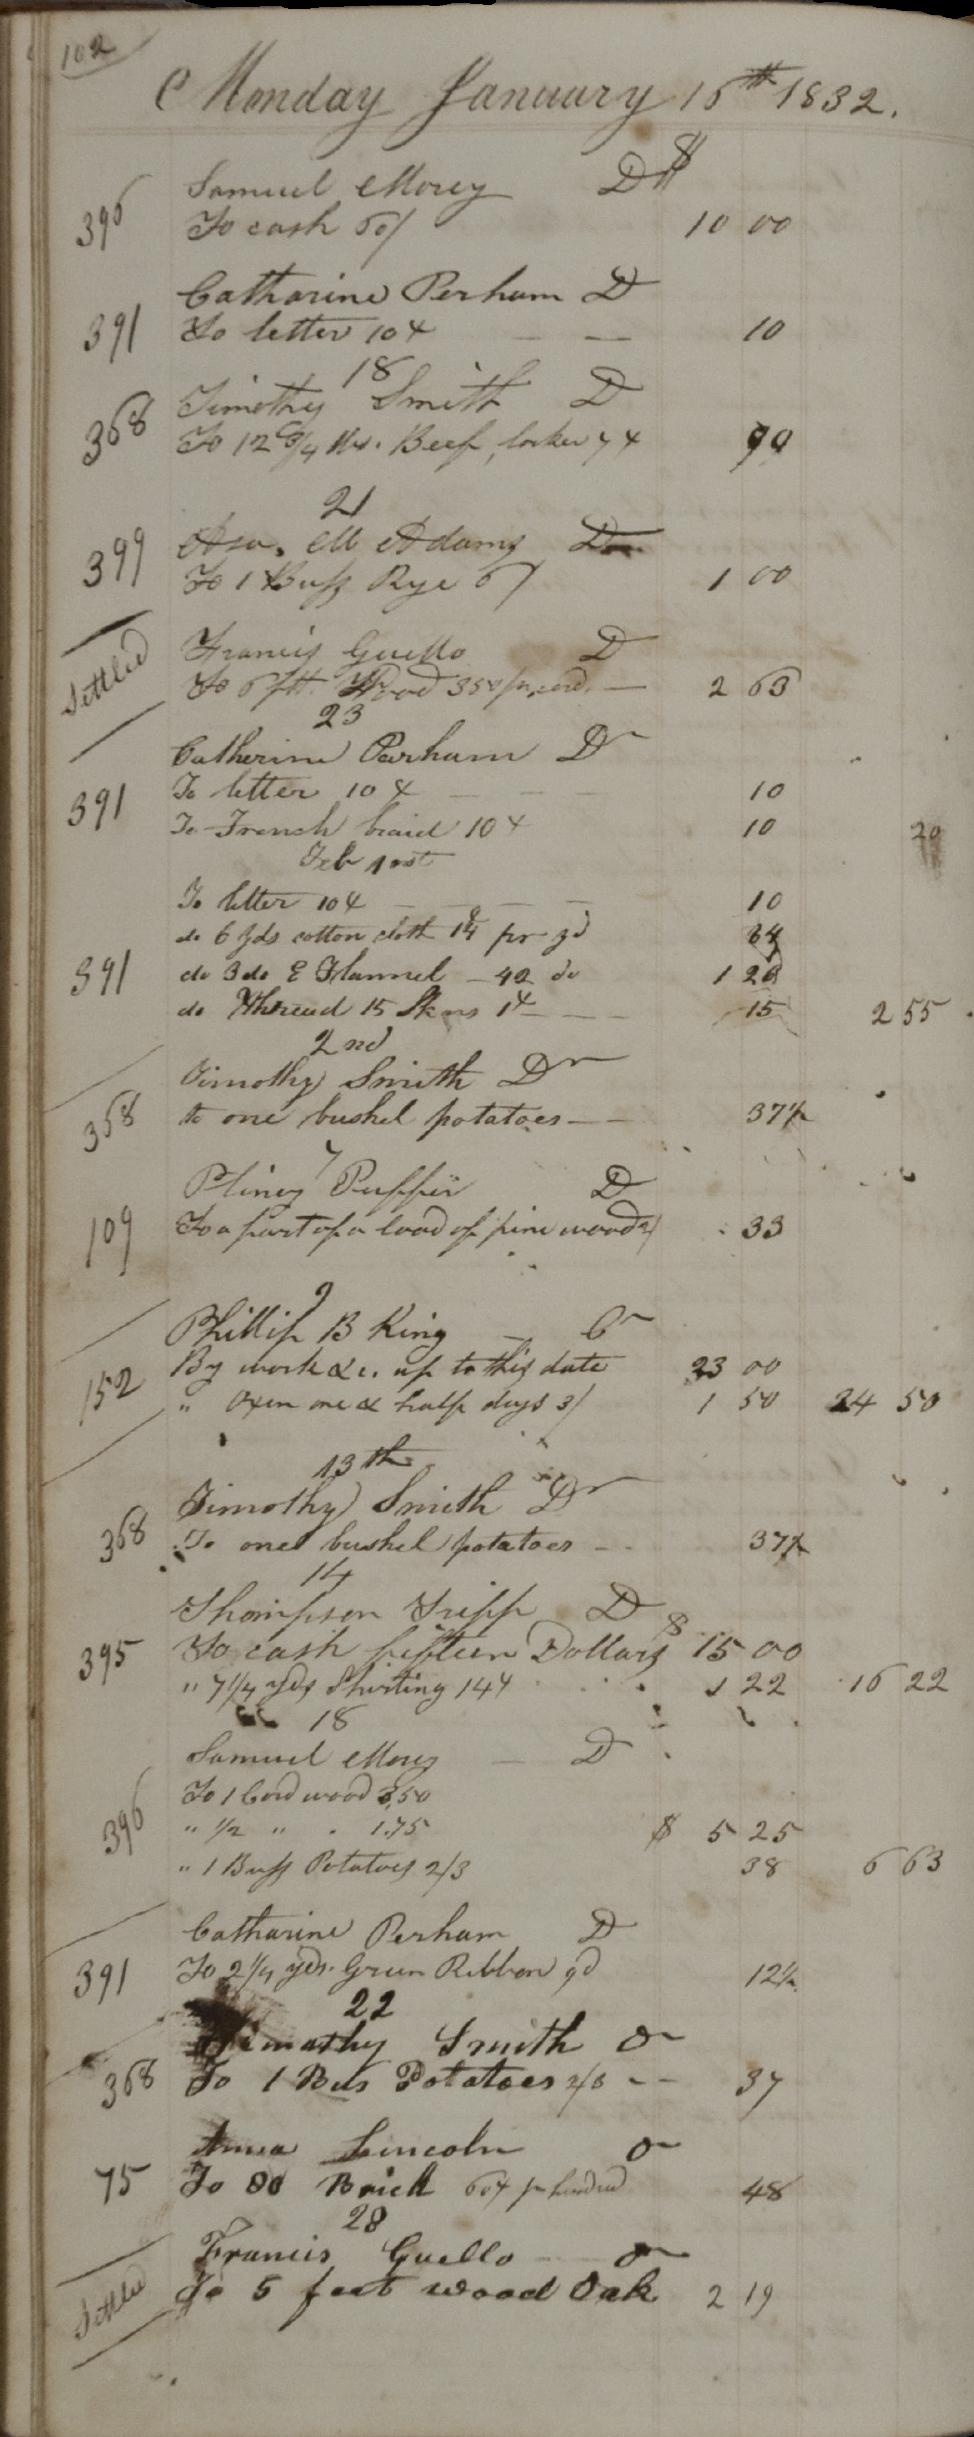 102
Monday January 16th 1832.
$
396 Samuel Morey Dr
To cash 60/ 10 00
Catharine Perham Dr
391 To letter 10 ¢ — — 10
18
368 Timothy Smith Dr
To 12 3/4 lbs. Beef, 7 ¢ 90
21
399 Asa. M Adams Dr
To 1 Buss Rye 6/ 1 00
Settled Francis Guello Dr
To 6 ft. Wood 350 pr cord. — 2 63
23
Catherine Perham Dr
391 To letter 10 ¢ — — — 10
To French braid 10 ¢ 10 20
Feb 1st
To letter 10 ¢ — — — — 10
do 6 yds cotton cloth 14 pr yd 84
391 do 3 do E Flannel — 42 do 1 26
do Thread 15 Skns 1 ¢ — — — 15 2 55
2nd
Timothy Smith Dr
368 to one bushel potatoes — — 37 1/2
7
Pliney Puffer Dr
109 To a part of a load of pine wood 2/ 33
9
Phillip B King — Cr
152 By work &c. up to this date 23 00
" Oxen one & half days 3/ 1 50 24 50
13th
Timothy Smith Dr
368 To one bushel potatoes — 37 1/2
14
Thompson Tripp Dr
395 To cash fifteen Dollars $ 15 00
" 7 1/4 yds Shirting 14 ¢ 1 22 16 22
18
Samuel Morey — Dr
To 1 Cord wood 3,50
396 " 1/2 " . 1.75 $ 5 25
" 1 Buss Potatoes 2/3 38 6 63
Catharine Perham Dr
391 To 2 1/4 yds. Green Ribbon 9d 12 1/2
22
Timothy Smith Dr
368 To 1 Bus Potatoes 2/3 — — 37
Lincoln Dr
75 To 80 Brick 60 ¢ pr hundred 48
28
Francis Guello — Dr
Settled To 5 feet wood Oak 2 19